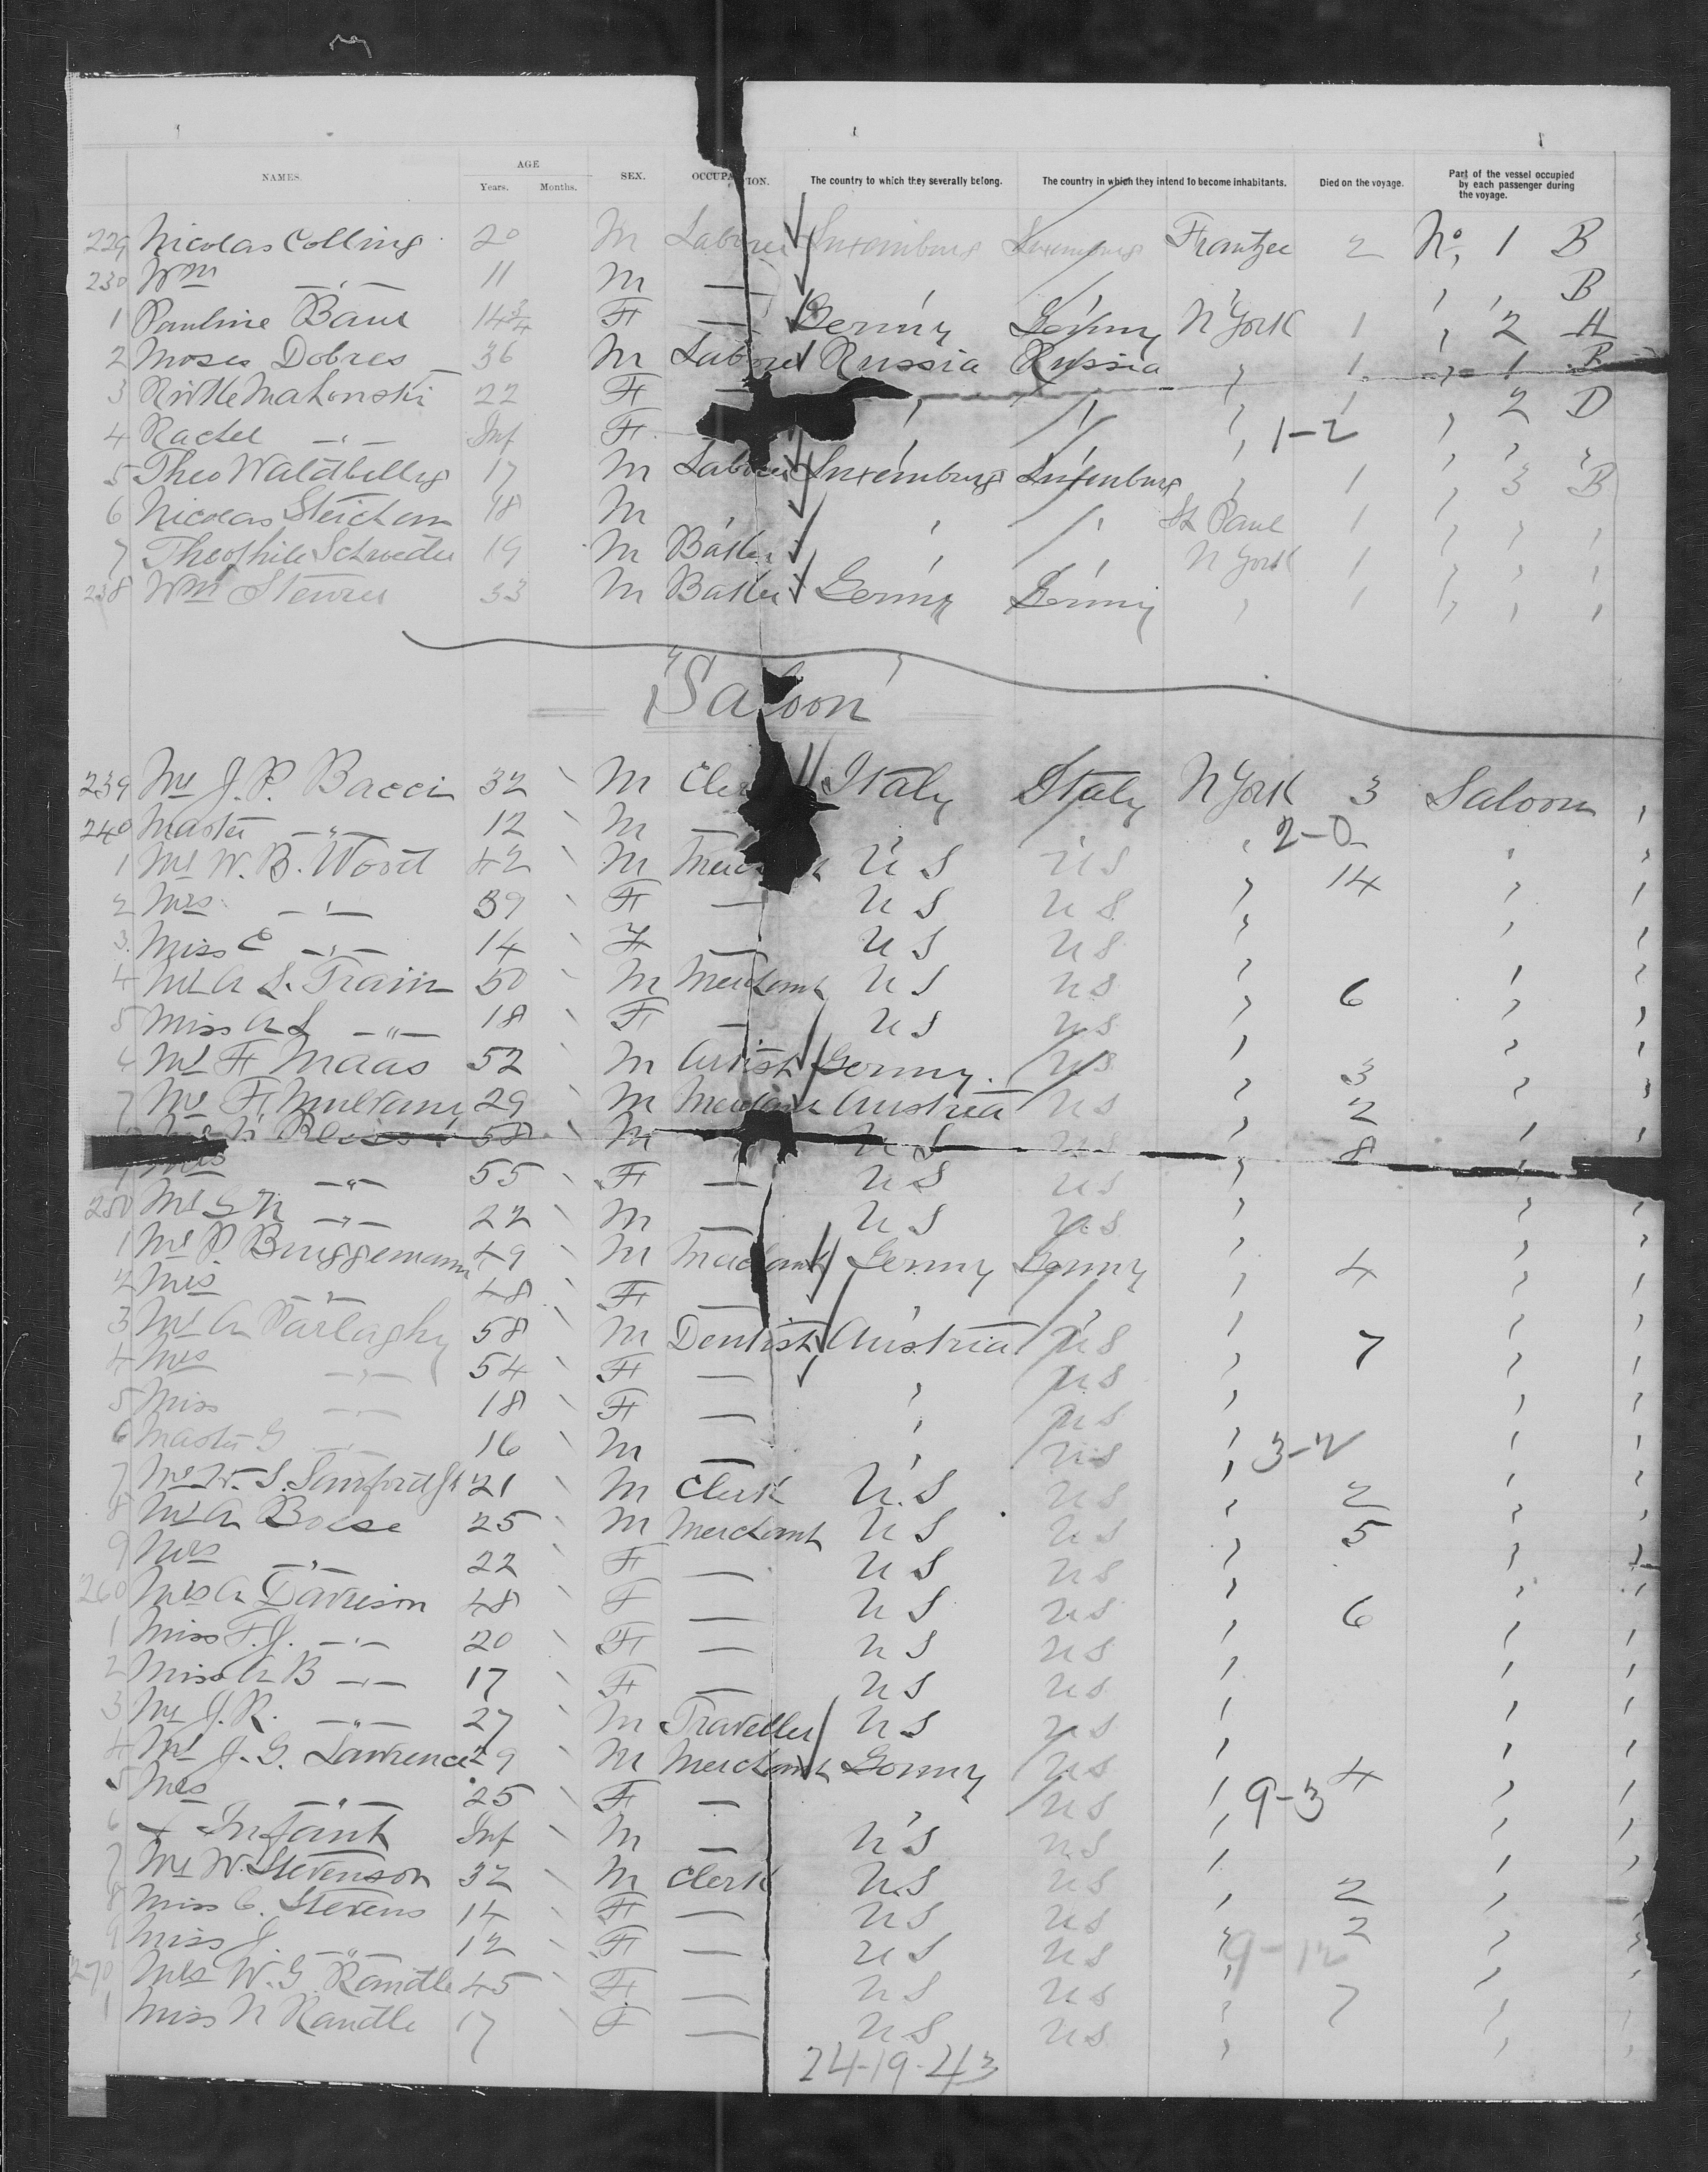 NAMES. AGE Years. Months. SEX. OCCUPATION. The country to which they severally belong. The country in which they intend to become inhabitants. Died on the voyage. Part of the vessel occupied by each passenger during the voyage.
229 Nicolas Colling 20 M Laborer Luxemburg Luxemburg 2 No. 1 B
230 Wm —"— 11 M — " " " " B
1 Pauline Baur 14 3/4 F — Germny Germny N York 1 " 2 H
2 Moses Dobres 36 M Laborer Russia Russia " 1 " 1 B
3 22 F — " " " 1 " 2 D
4 Rachel —"— Inf F — " " " 1-2 " " "
5 Theo 17 M Laborer Luxemburg Luxemburg " 1 " 3 B
6 Nicolas 18 M " " " St Paul 1 " " "
7 Theophile Schroeder 19 M " " N York 1 " " "
238 Wm 33 M Germny Germny " 1 " " "
"Saloon"
239 Mr J. P. Bacci 32 M Clerk Italy Italy N York 3 Saloon "
240 Master —"— 12 M — " " " 2-0 " "
1 Mr W. B. Wood 42 M Merchant U S U S " 14 " "
2 Mrs —"— 39 F — U S U S " " "
3 Miss E —"— 14 F — U S U S " " "
4 Mr A S. Train 50 M Merchant U S U S " 6 " "
5 Miss A S —"— 18 F — U S U S " " "
6 Mr F Maas 52 M Artist Germny. U S " 3 " "
7 Mr F. 29 M Merchant Austria U S " 2 " "
58 M U S U S " 8 " "
9 Mrs —"— 55 F — U S U S " " "
250 Mr G N —"— 22 M — U S U S " " "
1 Mr P Bruggemann 49 M Merchant Germny Germny " 4 " "
2 Mrs —"— 48 F — " " " " "
3 Mr A Parlaghy 58 M Dentist Austria U S " 7 " "
4 Mrs —"— 54 F — " U S " " "
5 Miss —"— 18 F — " U S " " "
6 Master G —"— 16 M — " U S " 3-2 " "
7 Mr W. S. 21 M Clerk U. S U S " 2 " "
8 Mr A Boese 25 M Merchant U S U S " 5 " "
9 Mrs —"— 22 F — U S U S " " "
260 Mrs A Davison 48 F — U S U S " 6 " "
1 Miss F. J. —"— 20 F — U S U S " " "
2 Miss A B —"— 17 F — U S U S " " "
3 Mr J. R. —"— 27 M Traveller U S U S " " "
4 Mr J. G. Lawrence 29 M Merchant Germny U S " 4 " "
5 Mrs —"— 25 F — U S " 9-3 " "
6 + Infant Inf M — U S U S " " "
7 Mr W. Stevenson 32 M Clerk U. S U S " 2 " "
8 Miss C. Stevens 14 F — U S U S " 2 " "
9 Miss J. —"— 12 F — U S U S " 9-12 " "
270 Mrs W. G Randle 45 F — U S U S " 7 " "
1 Miss N Randle 17 F — U S U S " " "
24-19-43